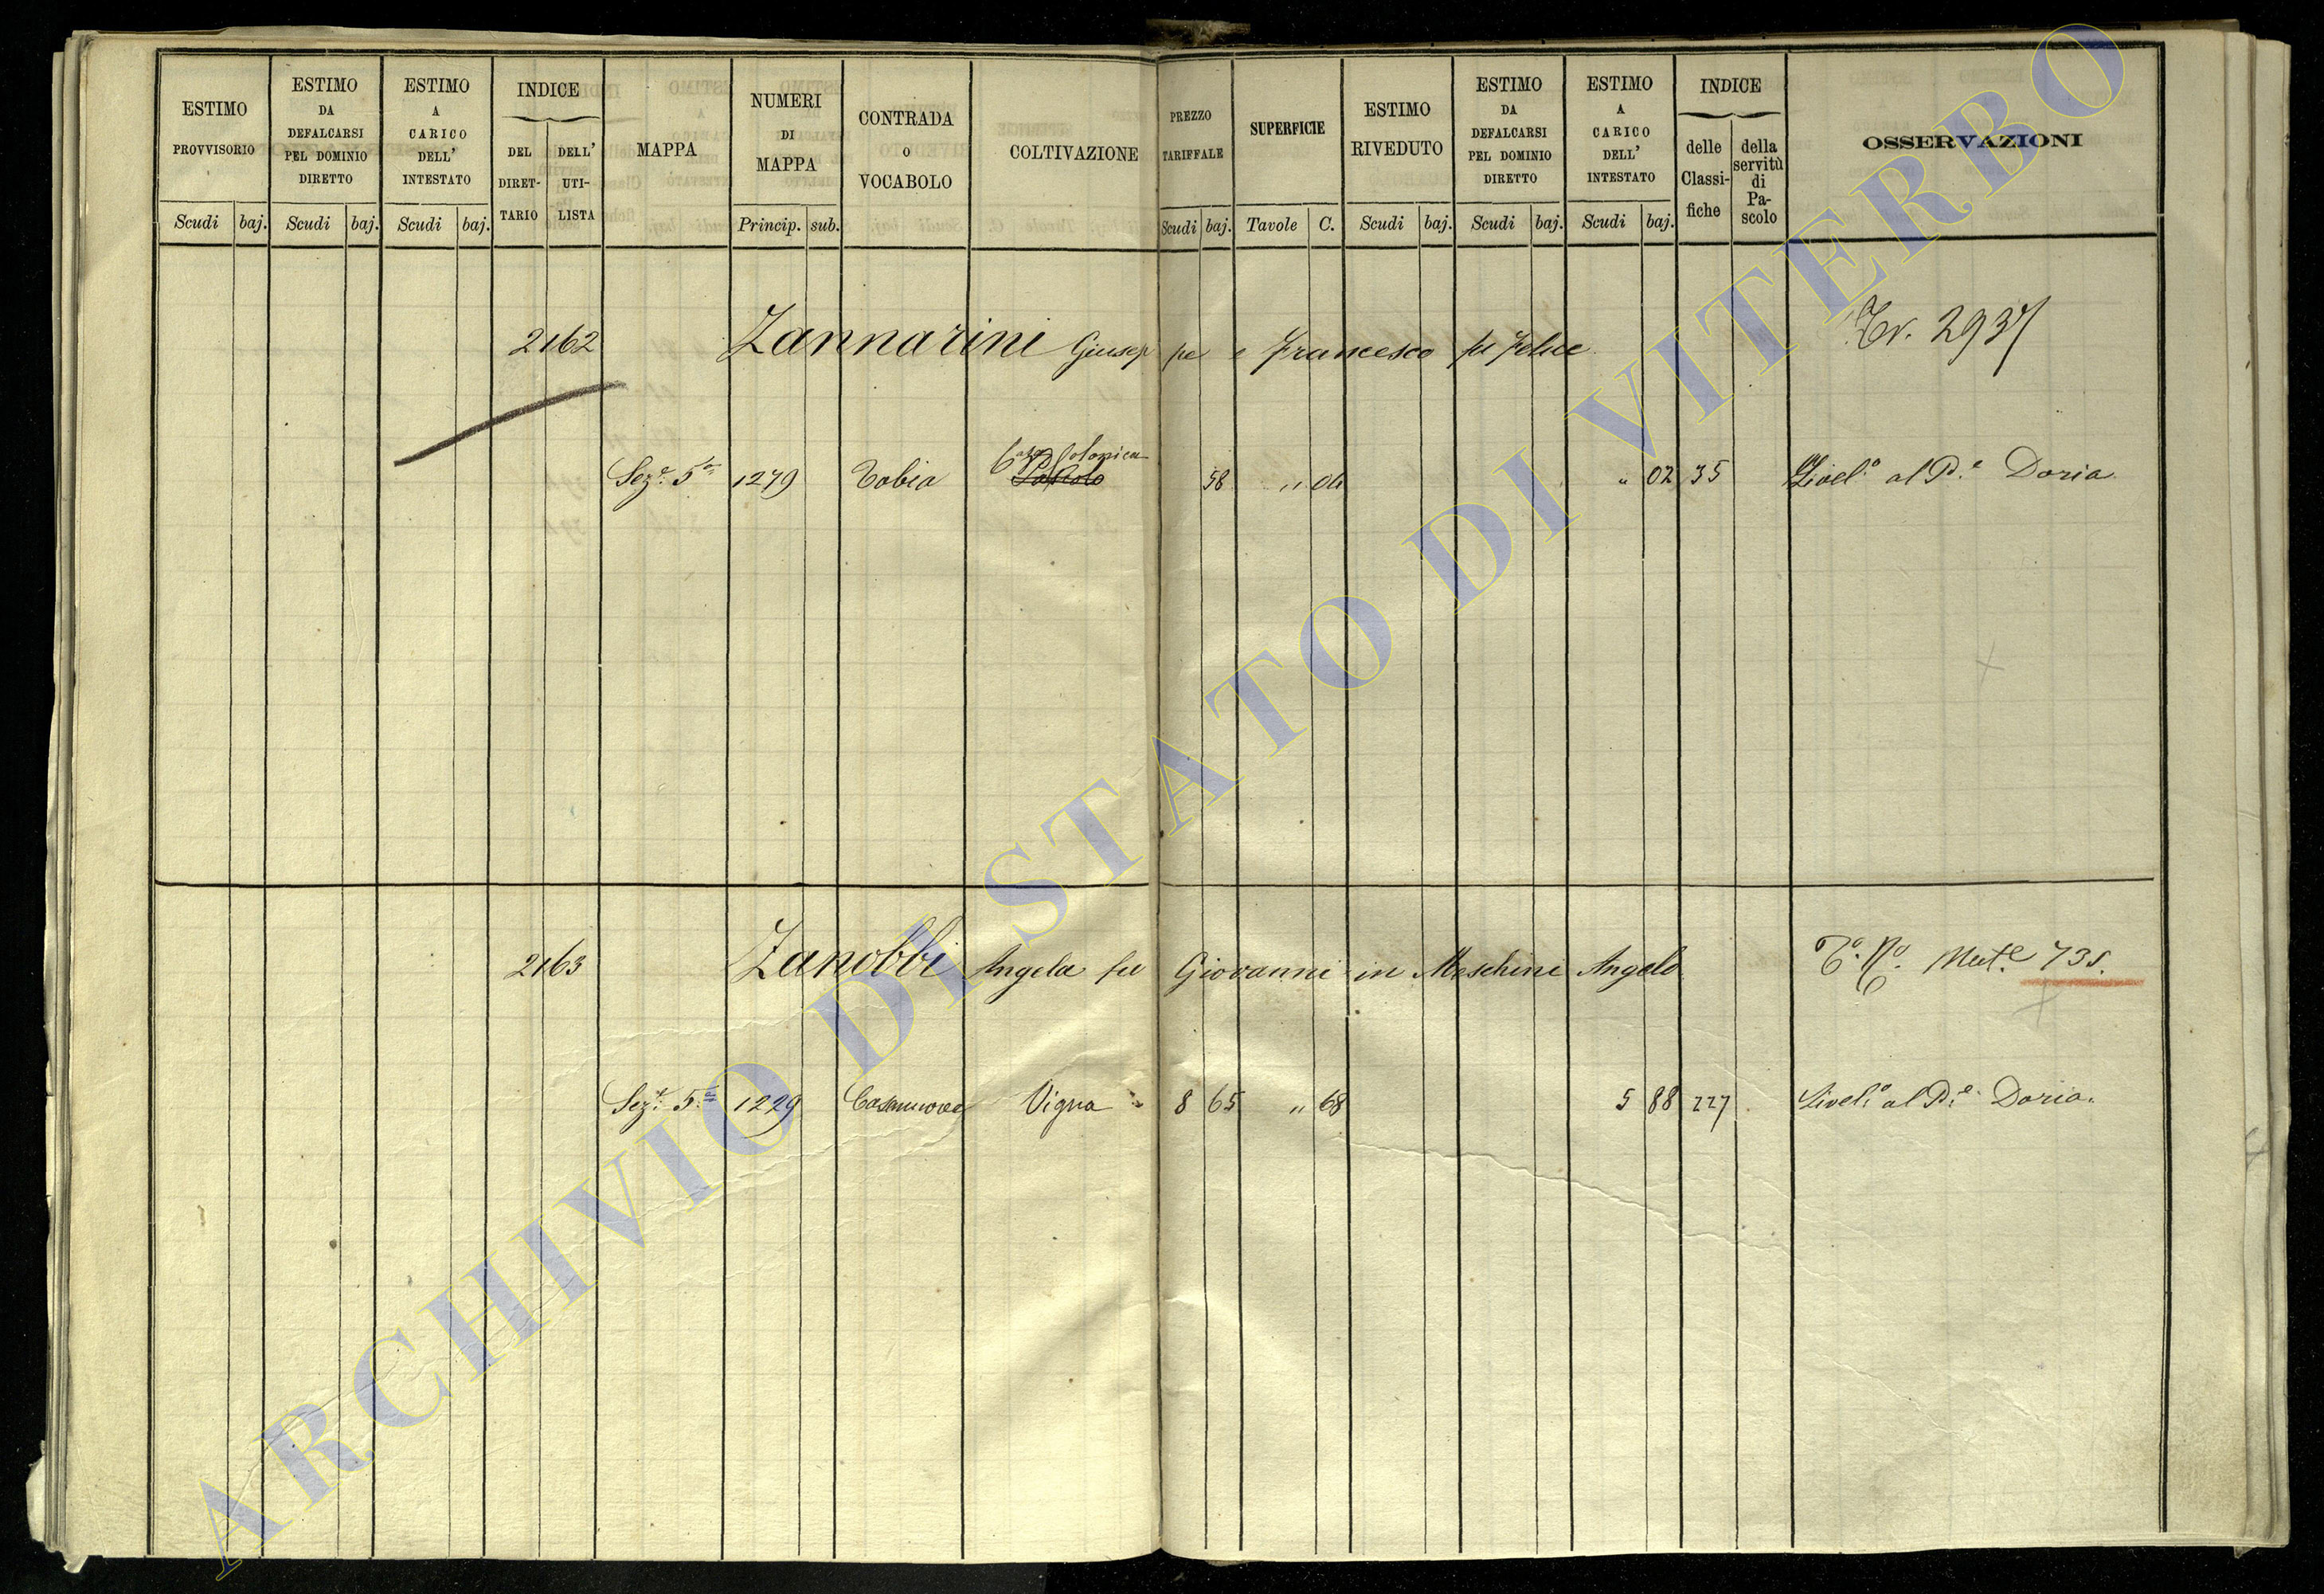 ESTIMO PROVVISORIO Scudi baj.
ESTIMO DA DEFALCARSI PEL DOMINIO DIRETTO Scudi baj.
ESTIMO A CARICO DELL' INTESTATO Scudi baj.
INDICE DEL DIRET-TARIO DELL' UTI-LISTA
MAPPA
NUMERI DI MAPPA Princip. sub.
CONTRADA O VOCABOLO
COLTIVAZIONE
PREZZO TARIFFALE Scudi baj.
SUPERFICIE Tavole C.
ESTIMO RIVEDUTO Scudi baj.
ESTIMO DA DEFALCARSI PEL DOMINIO DIRETTO Scudi baj.
ESTIMO A CARICO DELL' INTESTATO Scudi baj.
INDICE delle Classi-fiche della servitù di Pa-scolo
OSSERVAZIONI
2162 Zannarini Giuseppe e Francesco fu Felice Tr. 2937
Casa Colonica
Sez.e 5a 1279 Tobia Pascolo 58 " 04 " 02 35 Livel.o al P.e Doria
2163 Zanobbi Angela fu Giovanni in Meschini Angelo 735.
Sez.e 5.a 1229 Casanuova Vigna 8 65 " 68 5 88 227 Livel.o al P.e Doria.
ARCHIVIO DI STATO DI VITERBO